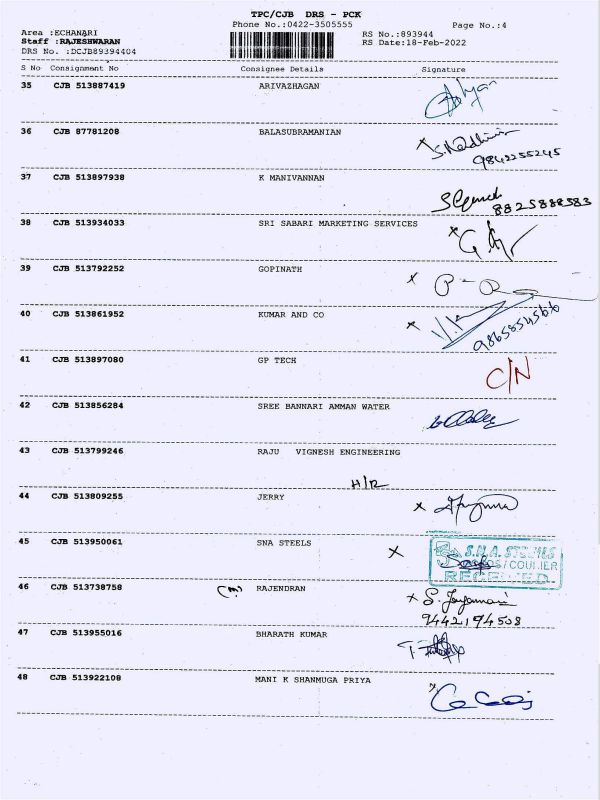 TPC/CJB DRS - PCK
Phone No.:0422-3505555
Page No.:4
Area :ECHANARI
RS No.:893944
Staff :RAJESHWARAN
RS Date:18-Feb-2022
DRS No. :DCJB89394404
S No Consignment No Consignee Details Signature
35 CJB 513887419 ARIVAZHAGAN
36 CJB 87781208 BALASUBRAMANIAN
9842255245
37 CJB 513897938 K MANIVANNAN
8825888583
38 CJB 513934033 SRI SABARI MARKETING SERVICES
39 CJB 513792252 GOPINATH
40 CJB 513861952 KUMAR AND CO
41 CJB 513897080 GP TECH C/N
42 CJB 513856284 SREE BANNARI AMMAN WATER
43 CJB 513799246 RAJU VIGNESH ENGINEERING
H/R
44 CJB 513809255 JERRY
45 CJB 513950061 SNA STEELS
S.N.A. STEELS
/COURIER
RECEIVED
46 CJB 513738758 (m) RAJENDRAN
9442194508
47 CJB 513955016 BHARATH KUMAR
48 CJB 513922108 MANI K SHANMUGA PRIYA